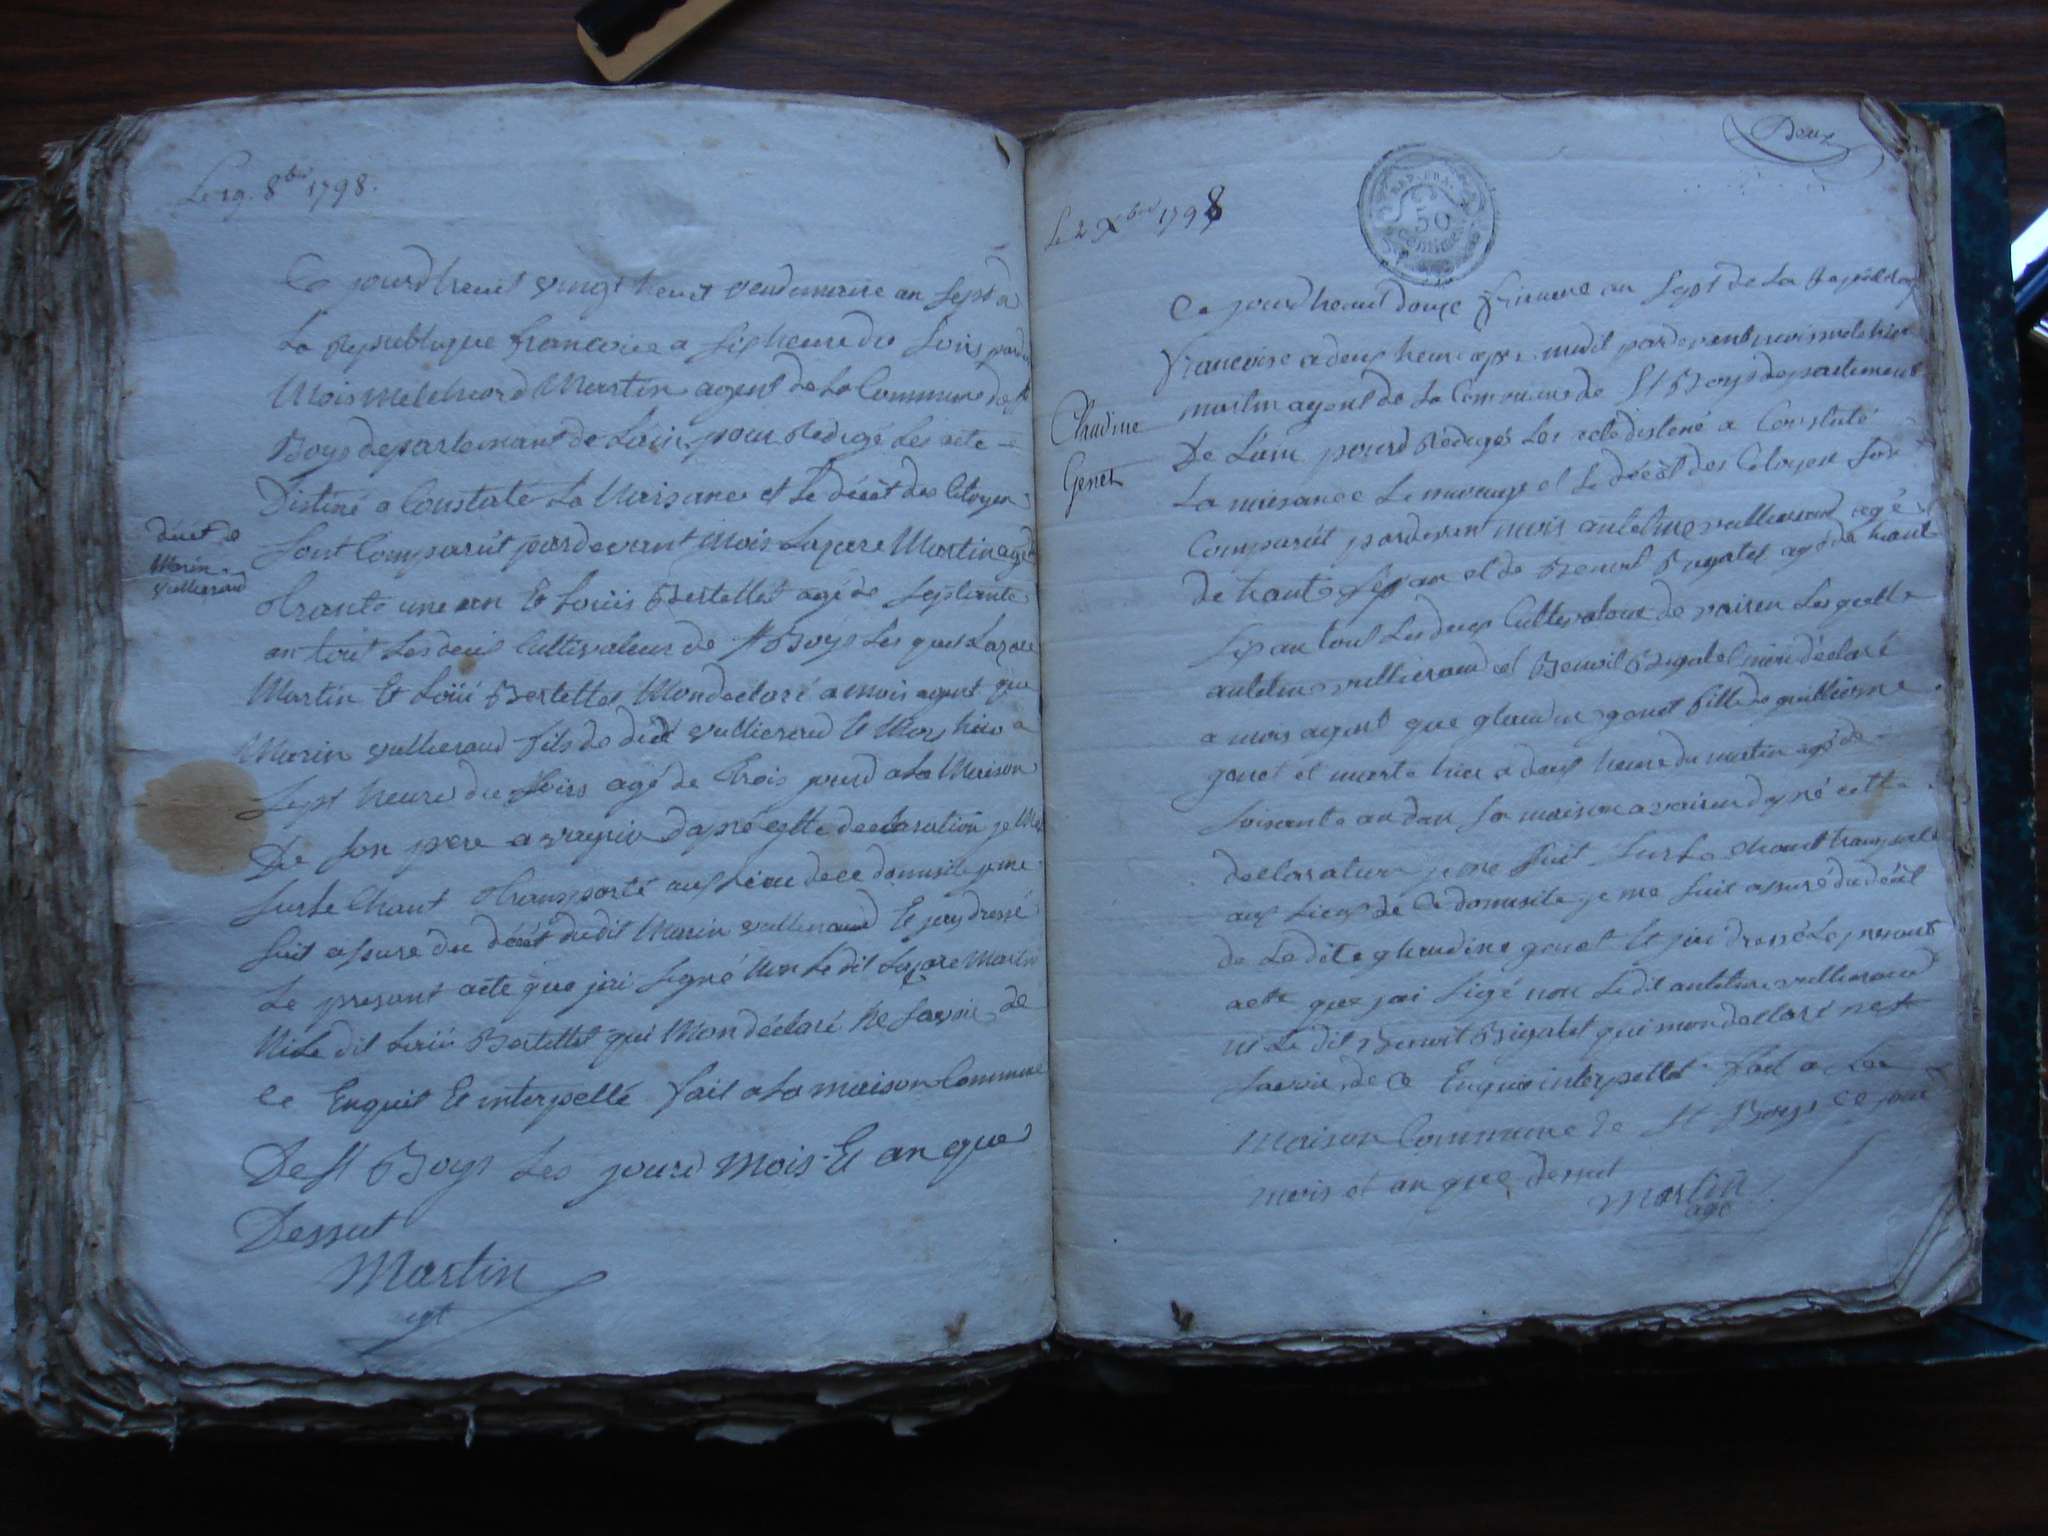 Le 19. 8bre 1798.
Ce jourdheuit vingt heuit vendemiaire an sept d
La Republique francoise a sis heure du soirs pard
Mois Melchiord Martin agent de La Commune de st
Boys departemant de Lain pour Redigé Les acte
Distiné a Constaté La Naisance et Le décèt des Citoyen
décèt de
Marin
vullieraud
sont Comparût pardevant Mois Lazare Martin agé d
trante une an Et Loüis Bertellet agé de septante
an tout Les deus Cultivateur de st Boys Les quel Lazare
Martin Et Loüi Bertellet Mon declaré a mois agent que
Marin vullieraud fils de vullieraud Et Mors hier a
sept heure du soirs agé de trois jourd a La Maison
De son pere a dapré cette declaration je Me
sur Le Chant transporté aus Lieu de ce domicile je me
suit assuré du décèt dudit Marin vullieraud Et jay dressé
Le presant acte que jai signé Non Le dit Lazare Martin
Ni Le dit Loüi Bertellet qui Mon déclaré Ne savoir de
ce Enquit Et interpellé fait a La maison Commune
De st Boys Les jourd mois Et an que
Dessut
Martin
agt
Deux
Le 2 Xbre 1798
50
Centimes
Ce jourdheuit douze frimaire an sept de La Republiq
francoise a deus heure apres midit pardevant mois melchior
martin agent de La Commune de st Boys departement
Claudine
Genet
De Lain pourd Redigés Les acte distiné a Constaté
La naisance Le mariage et Le décèt des Citoyen son
Comparût pardevan mois antelme vullieraud agé
de trante sis an et de Benoit Bigalet agé de trant
sis an tout Les deus Cultivateur de Les quelle
antelme vullieraud et Benoit Bigalet mon déclaré
a mois agent que glaudine genet fille de guillieme
genet et morte hier a deus heure du martin agé de
soisante an dan sa maison a dapré cette
declaration je me suit sur Le Chant transporté
aus Lieus de Ce domicile je me suit assuré du décèt
de Ledite glaudine genet Et jai dressé Le presant
acte que jai sigé non Le dit antelme vullieraud
ni Le dit Benoit Bigalet qui mon declaré ne
savoir de Ce Enquis interpellet fait a La
Maison Commune de st Boys ce jour
mois et an que dessut
Martin
agt